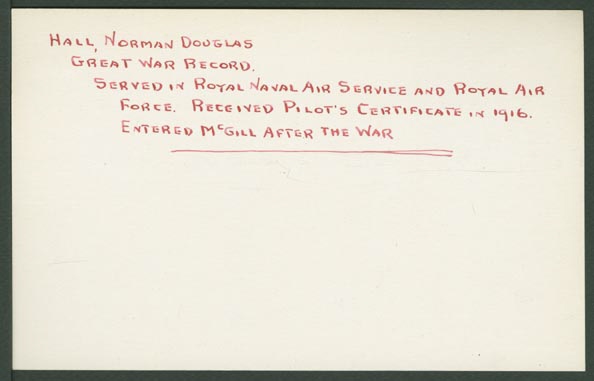 Hall, Norman Douglas
Great War Record.
Served in Royal Naval Air Service and Royal Air
Force. Received Pilot's Certificate in 1916.
Entered McGill After the War